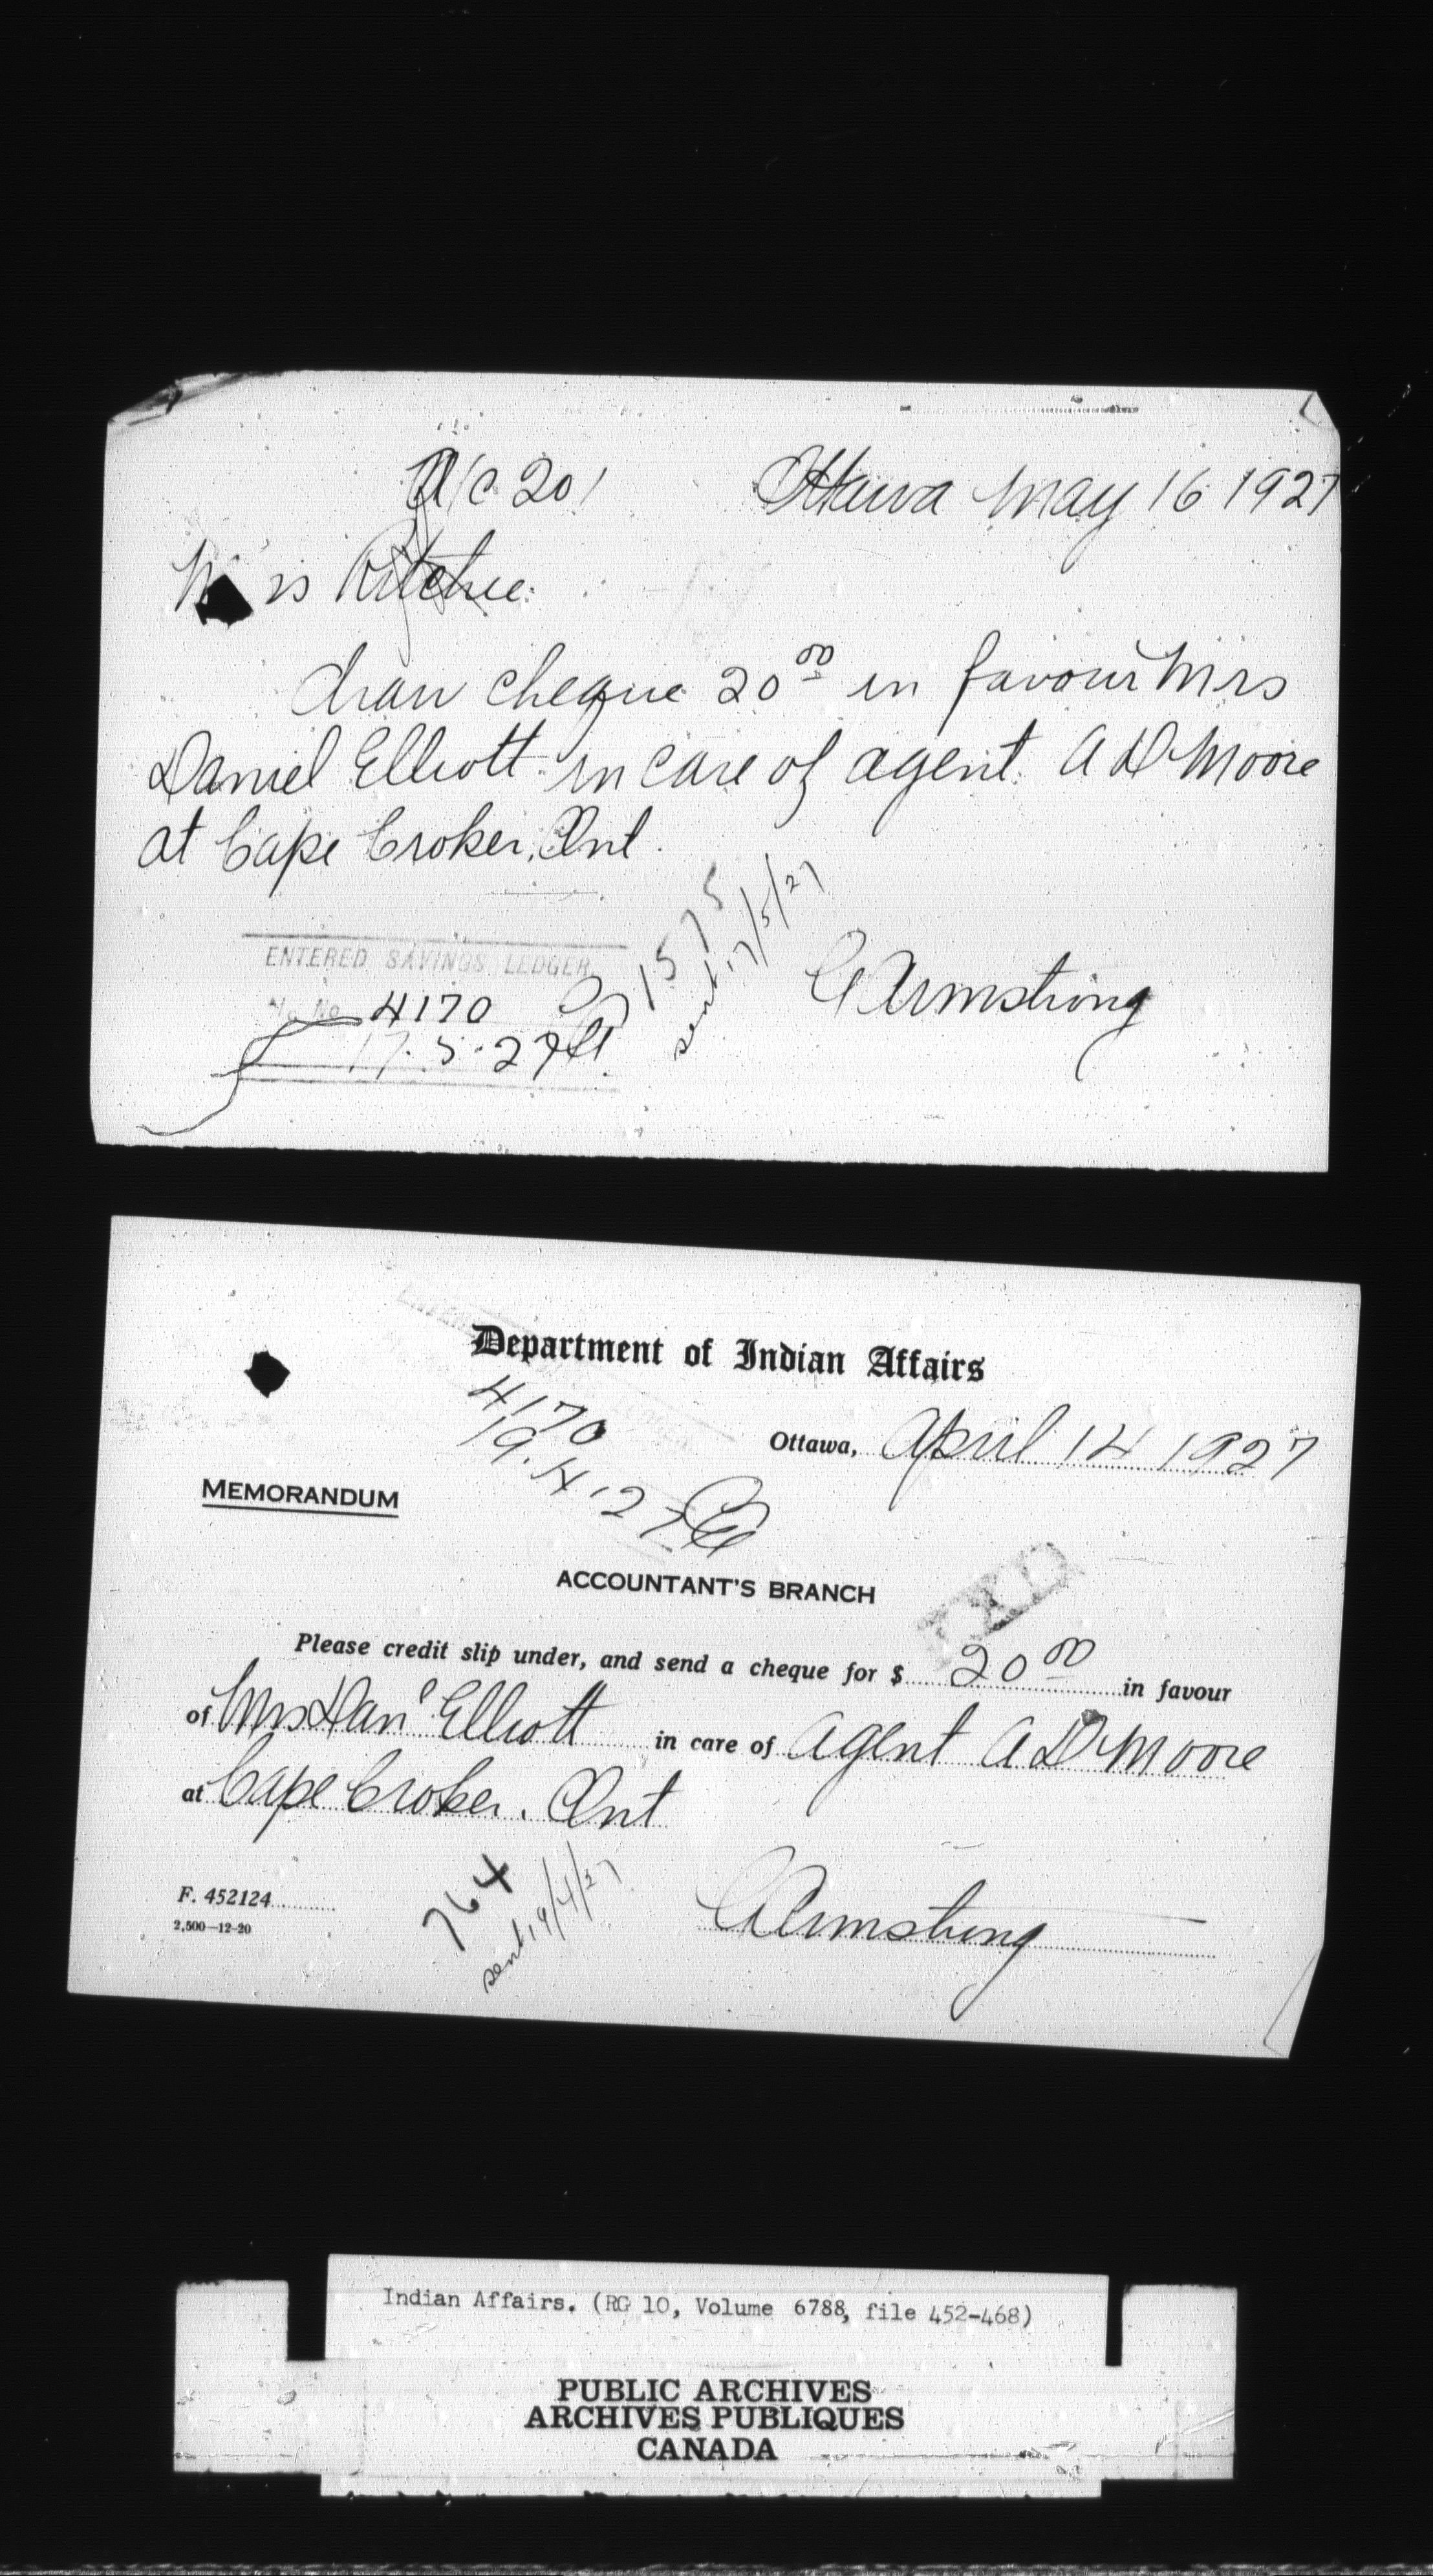 A/C 201 Ottawa May 16 1927
Ritchie
draw cheque 20 00 in favour Mrs
Daniel Elliott in care of agent A D Moore
at Cape Croker, Ont.
1575
sent 17/5/27
C Armstrong
ENTERED SAVINGS LEDGER
No. 4170
17.5.27
Department of Indian Affairs
4170
19.4.27
Ottawa, April 14 1927
MEMORANDUM
ACCOUNTANT'S BRANCH
Please credit slip under, and send a cheque for $ 20 00 in favour
of Mrs Danl Elliott in care of Agent A D Moore
at Cape Croker. Ont
764
sent 19/4/27
F. 452124
2,500—12-20
C Armstrong
Indian Affairs. (RG 10, Volume 6788, file 452-468)
PUBLIC ARCHIVES
ARCHIVES PUBLIQUES
CANADA